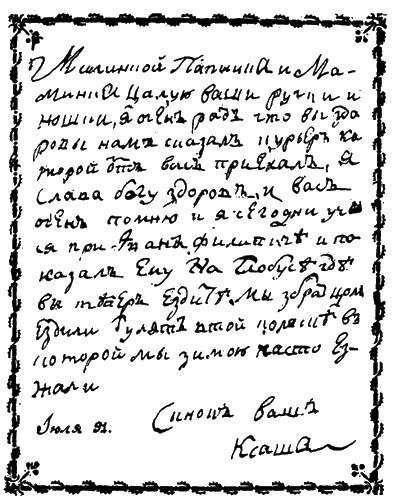 Миминкой Папинка и Ма-
минка Цалую ваши ручки и
ношки, я очень радъ что вы зда
ровы намъ сказалъ курьеръ ка
торой отъ васъ приехалъ, я
слава богу здоровъ, и васъ
очень помню и я сегодни учи
ся при Иванъ филипичѣ и по
казалъ Ему На Глобусѣ гдѣ
вы тѣперь Ездитѣ мы збратцом
Ездили Гулять втой коляскѣ въ
которой мы зимою часто Ез-
жали
Июля 31. Синокъ вашъ
Ксаша